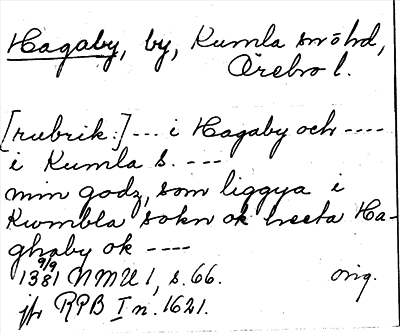 Hagaby, by, Kumla snöhd,
Örebro l.
[rubrik:] --- i Hagaby och ----
i Kumla s. ---
min godz, som liggya i
Kwmbla sokn ok heeta Ha-
ghaby ok ----
9/9
1381 NMU 1, s. 66. orig.
jfr RPB I n. 1621.